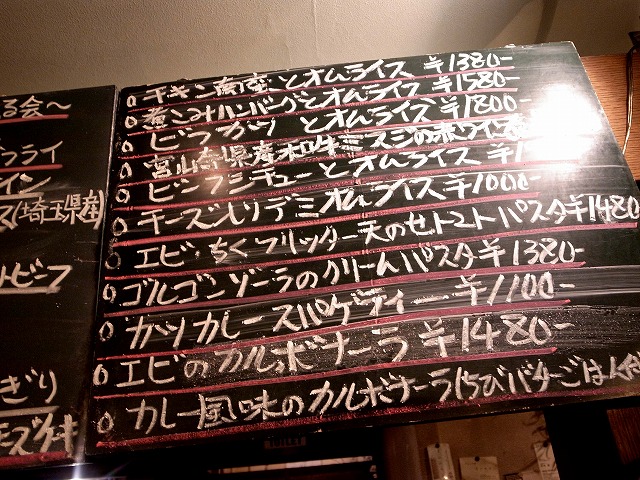 る会〜
フライ
イン
ス(埼玉県産)
ビーフ
ぎり
モズクキ
チキン南蛮とオムライス ¥1380-
煮こみハンバーグとオムライス ¥1580-
ビーフカツ とオムライス ¥1800-
宮崎県産和牛ミスジの赤ワイン
ビーフシチューとオムライス ¥1
チーズ入りデミオムライス ¥1000-
エビ・ちくフリッター天のせトマトパスタ ¥1480
ゴルゴンゾーラのクリームパスタ ¥1380-
カツカレースパゲティー ¥1100-
エビのカルボナーラ ¥1480-
カレー風味のカルボナーラ
ごはん